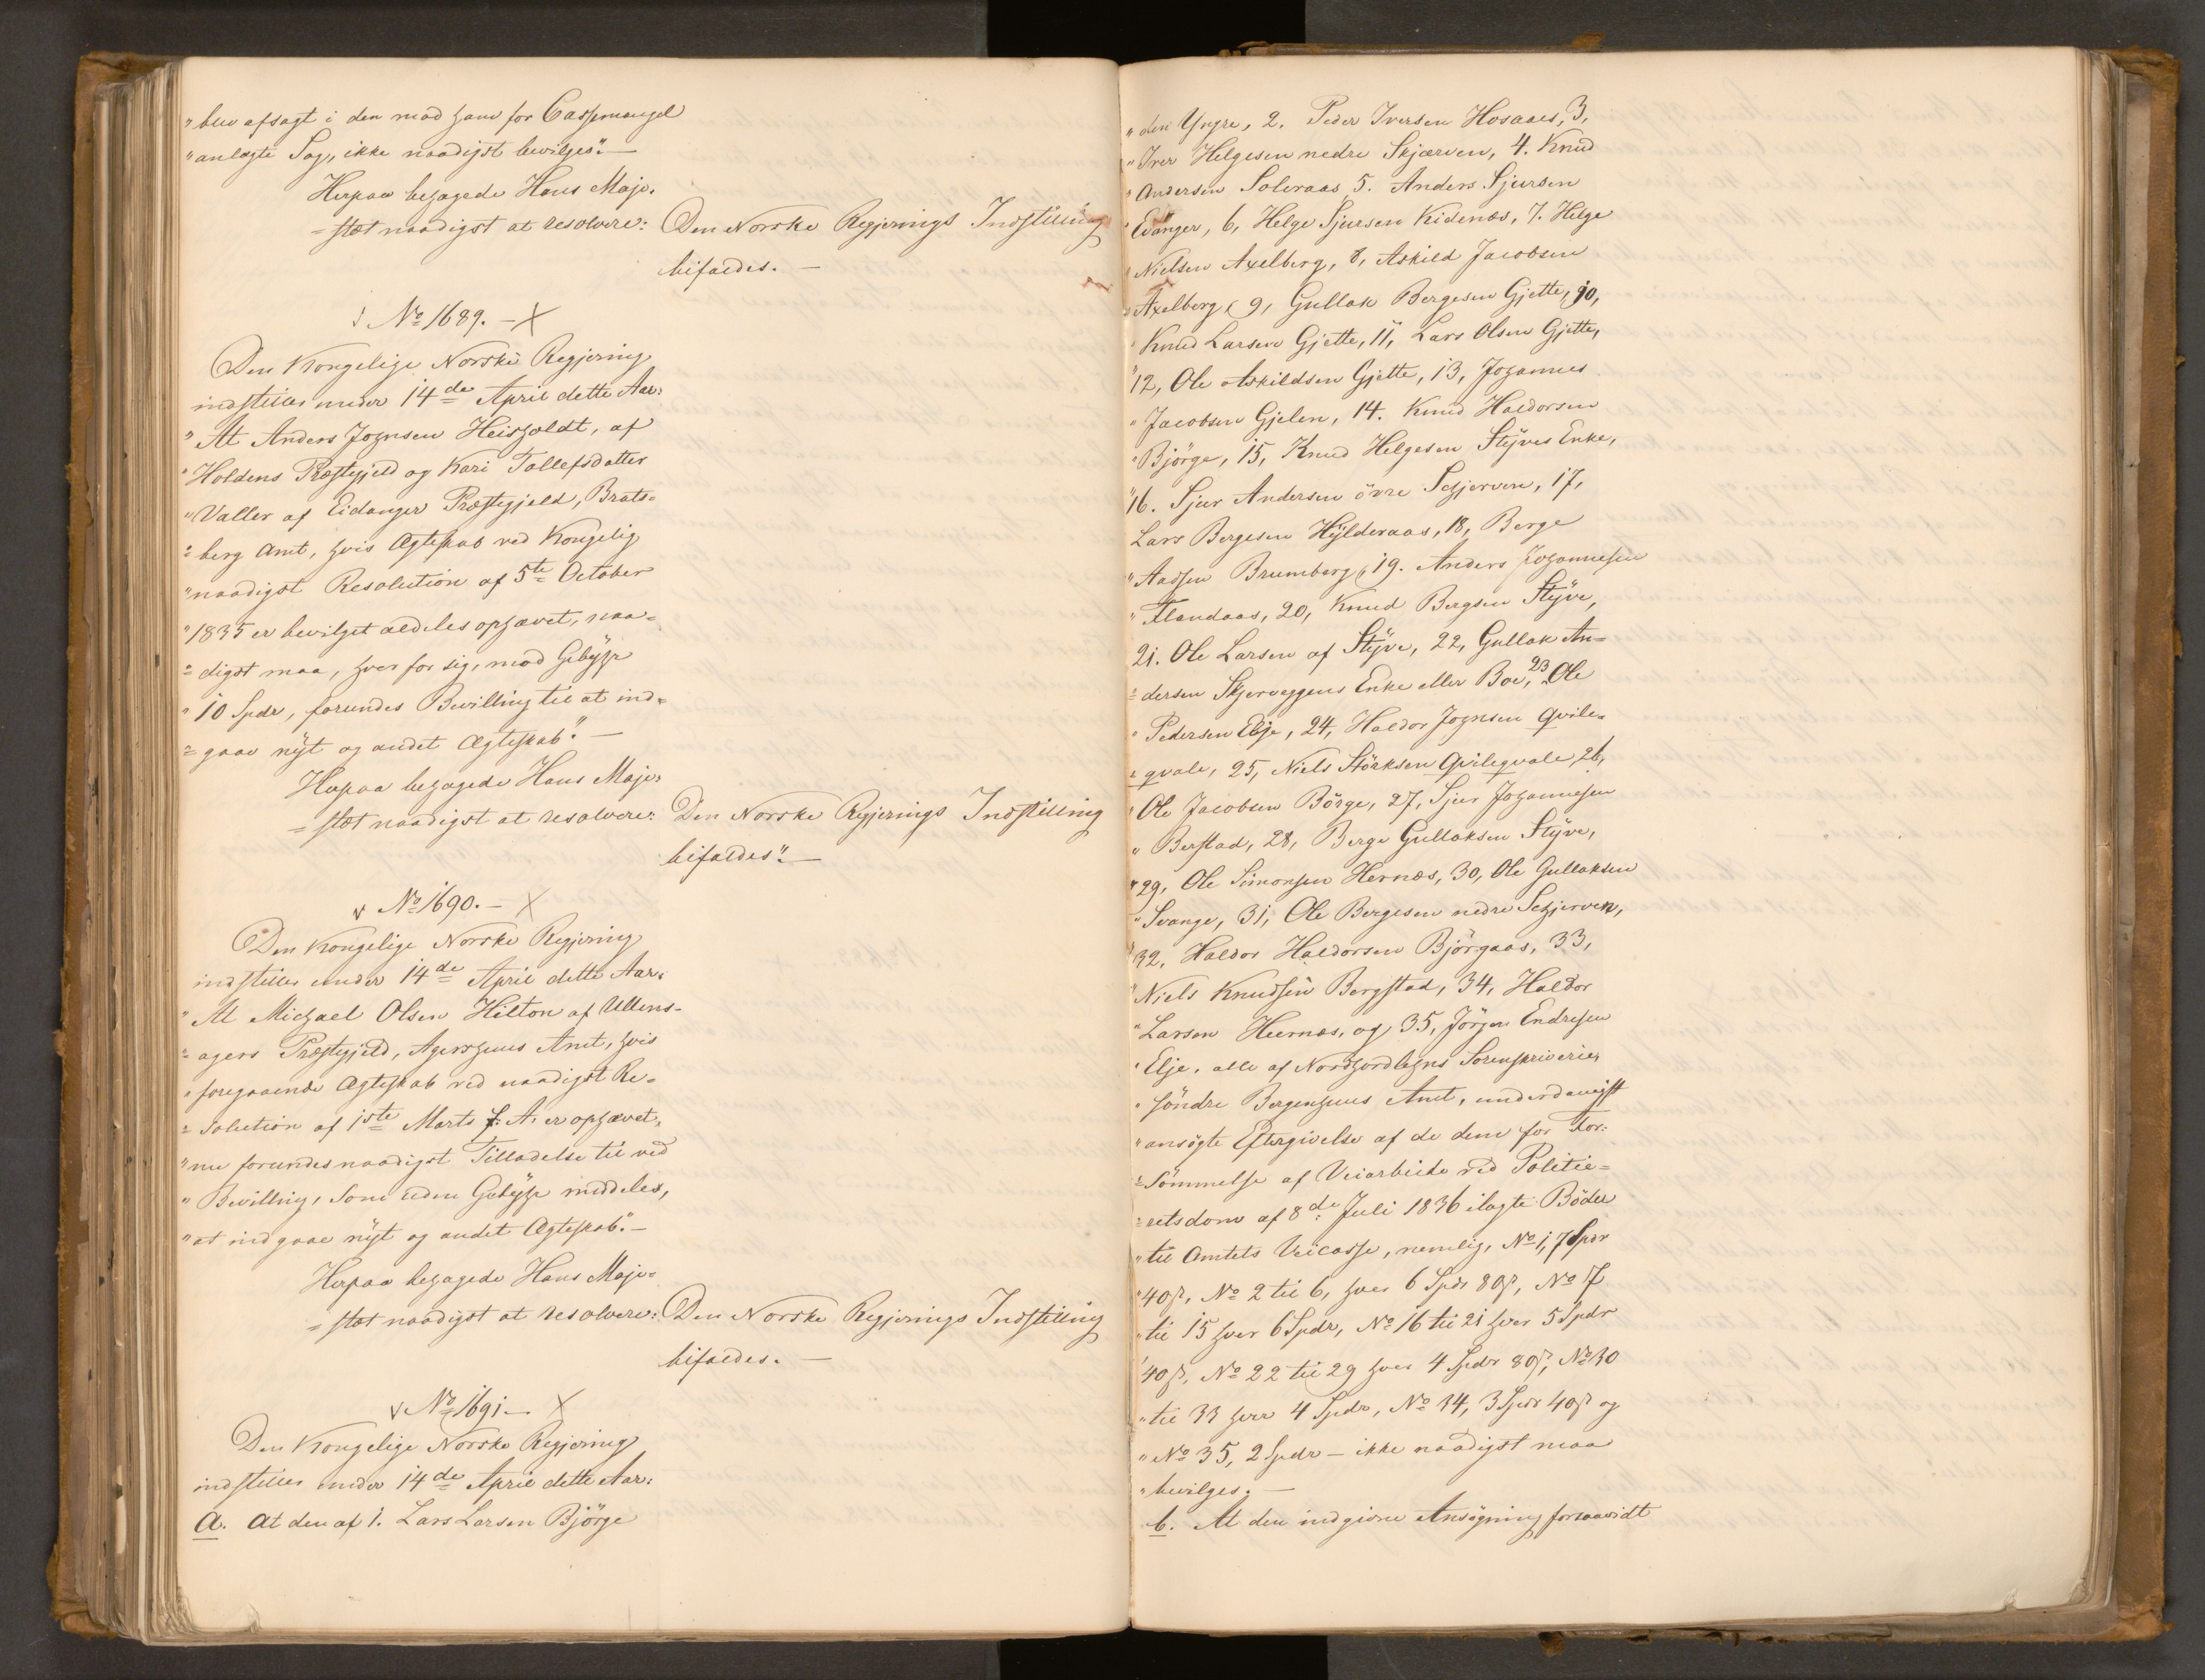 "blev afsagt i den mod ham for Cassemangel
"anlagte Sag, ikke naadigst bevilges". —
Herpaa behagede Hans Maje-
=stæt naadigst at resolvere: Den Norske Regjerings Indstilling
bifaldes. —
No 1689. —
Den Kongelige Norske Regjering
indstiller under 14de April dette Aar:
"At Anders Johnsen Heisholdt, af
"Holdens Præstegjeld og Kari Tollefsdatter
"Valler af Eidanger Præstegjeld, Brats=
=berg Amt, hvis Ægteskab ved Kongelig
"naadigst Resolution af 5te October
"1835 er bevilget aldeles ophævet, naa=
=digst maa, hver for sig, mod Gebyhr
"10 Spdr, forundes Bevilling til at ind=
=gaae nyt og andet Ægteskab." —
Herpaa behagede Hans Maje=
=stæt naadigst at resolvere: Den Norske Regjerings Indstilling
bifaldes". —
No 1690. —
Den Kongelige Norske Regjering
indstiller under 14de April dette Aar:
"At Michael Olsen Hilton af Ullens-
=agers Præstegjeld, Agershuus Amt, hvis
"foregaaende Ægteskab ved naadigst Re=
=solution af 1ste Marts f: A: er ophævet,
"nu forundes naadigst Tilladelse til ved
"Bevilling, som uden Gebyhr meddeles,
"at indgaae nyt og andet Ægteskab." —
Herpaa behagede Hans Maje=
=stæt naadigst at resolvere: Den Norske Regjerings Indstilling
bifaldes. —
No 1691 —
Den Kongelige Norske Regjering
indstiller under 14de April dette Aar:
a. At den af 1. Lars Larsen Björge
"den Yngre, 2. Peder Iversen Hosaas, 3,
"Iver Helgesen nedre Skjærven, 4. Knud
"Andersen Soleraas 5. Anders Sjursen
"Evanger, 6, Helge Sjursen Kidenæs, 7. Helge
"Nielsen Axelberg, 8, Askild Jacobsen
"Axelberg, 9, Gullak Bergesen Gjette, 10,
"Knud Larsen Gjette, 11, Lars Olsen Gjette,
"12, Ole Askildsen Gjette, 13, Johannes
"Jacobsen Gjelen, 14. Knud Haldorsen
"Björge, 15, Knud Helgesen Styves Enke,
"16. Sjur Andersen övre Schjerven, 17,
Lars Bergesen Hylderaas, 18, Berge
"Aassen Brumborg, 19. Anders Johannesen
"Flandaas, 20, Knud Bergsen Styve,
21. Ole Larsen af Styve, 22, Gullak An=
=dersen Skjerveggens Enke eller Boe, 23 Ole
"Pedersen Elje, 24, Haldor Johnsen Qvile=
=qvale, 25, Niels Störksen Qvileqvale, 26,
"Ole Jacobsen Börge, 27, Sjur Johannesen
"Berstad, 28, Berge Gullaksen Styve,
"29, Ole Simonsen Hernæs, 30, Ole Gullaksen
"Svange, 31, Ole Bergesen nedre Schjerven,
"32, Haldor Haldorsen Björgaas, 33,
"Niels Knudsen Bergstad, 34, Haldor
"Larsen Heernæs, og 35, Jörgen Endresen
"Elje, alle af Nordhordlehns Sorenskriverie,
"söndre Bergenhuus Amt, underdanigst
"ansögte Eftergivelse af de dem for For=
=sömmelse af Veiarbeide ved Politie=
=retsdom af 8de Juli 1836 ilagte Böder
"til Amtets Veicasse, nemlig, No 1, 7 Spdr
"40 ß, No 2 til 6, hver 6 Spdr 80 ß, No 7
"til 15 hver 6 Spdr, No 16 til 21 hver 5 Spdr
"40 ß, No 22 til 29 hver 4 Spdr 80 ß, No 30
"til 33 hver 4 Spdr, No 34, 3 Spdr 40 ß og
"No 35, 2 Spdr — ikke naadigst maa
"bevilges. —
b. At den indgivne Ansögning forsaavidt